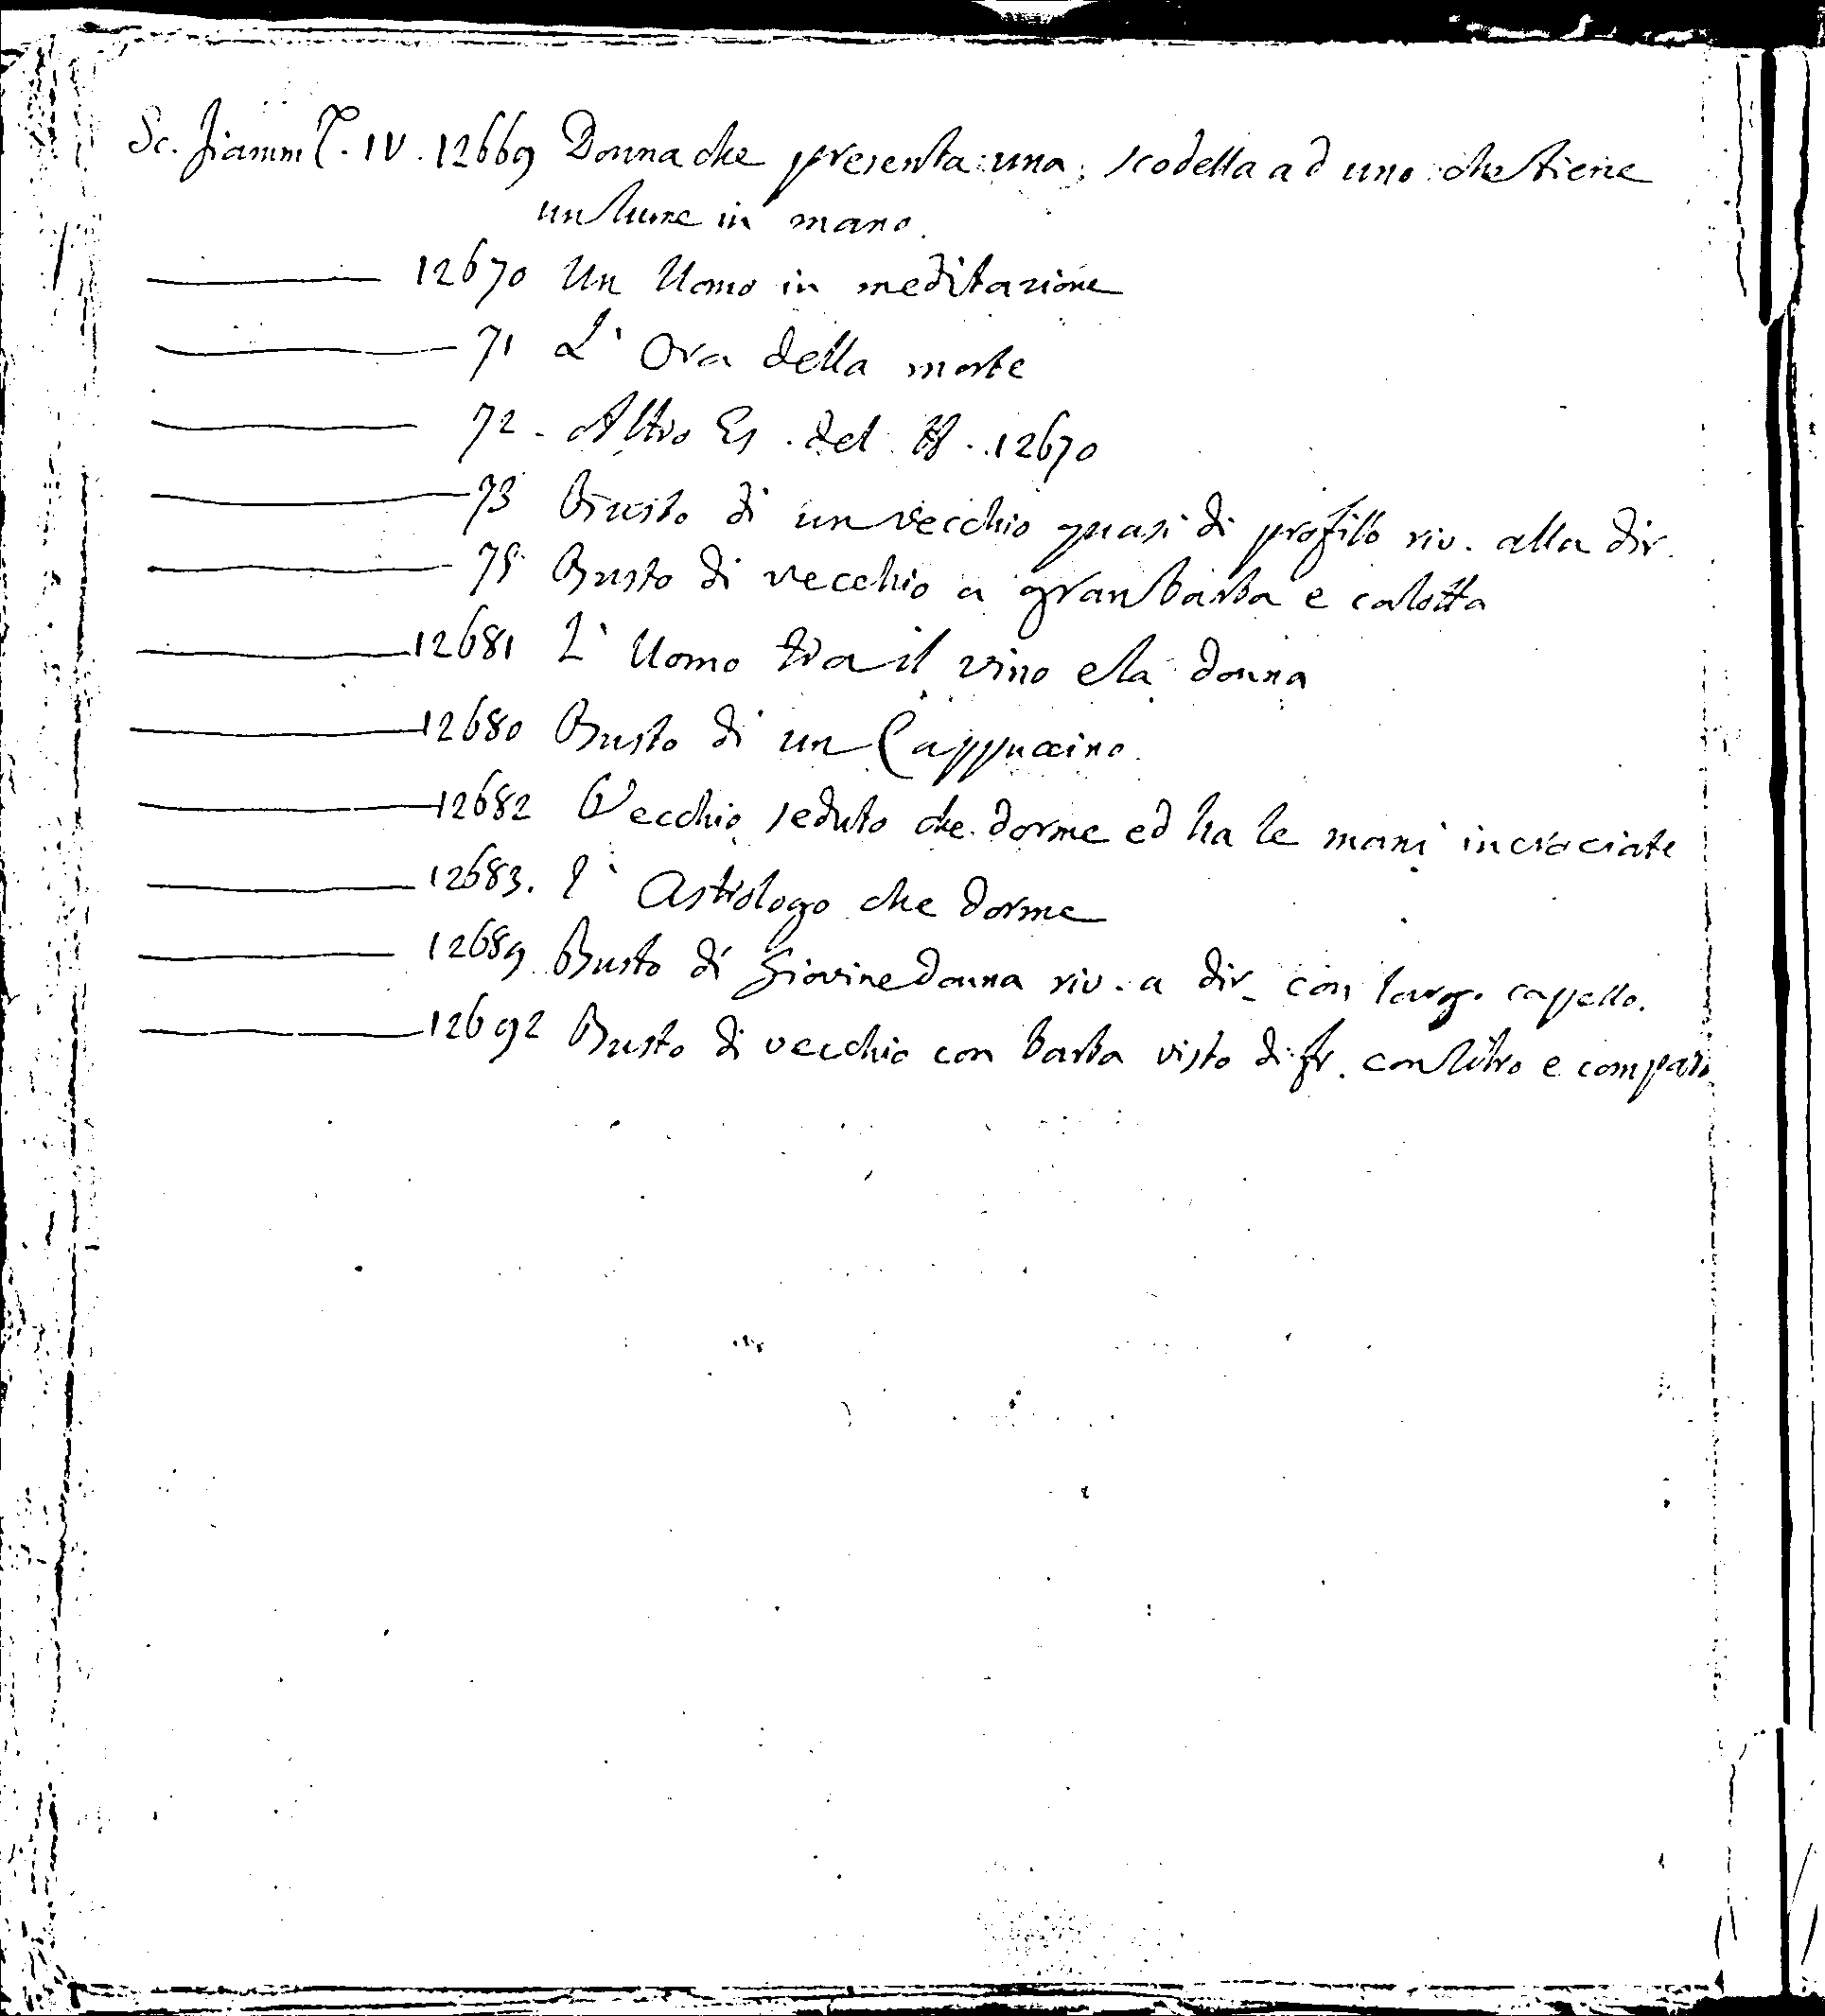 Sc. fiamm T. IV. 12669 Donna che presenta una scodella ad uno che tiene
un lume in mano.
12670 Un Uomo in meditazione
71 L' Ora della morte
72 - Altro Es. del N. 12670
73 Busto di un vecchio quasi di profilo riv. alla dir.
75 Busto di vecchio a gran barba e calotta
12681 L' Uomo tra il vino e la donna
12680 Busto di un Cappuccino.
12682 Vecchio seduto che dorme ed ha le mani incrociate
12683. L' Astrologo che dorme
12689 Busto di Giovine donna riv. a dir. con largo cappello.
12692 Busto di vecchio con barba visto di fr. con libro e